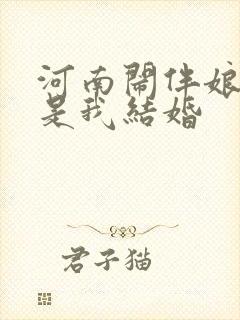 河南鬧伴娘
是我結婚
君子猫